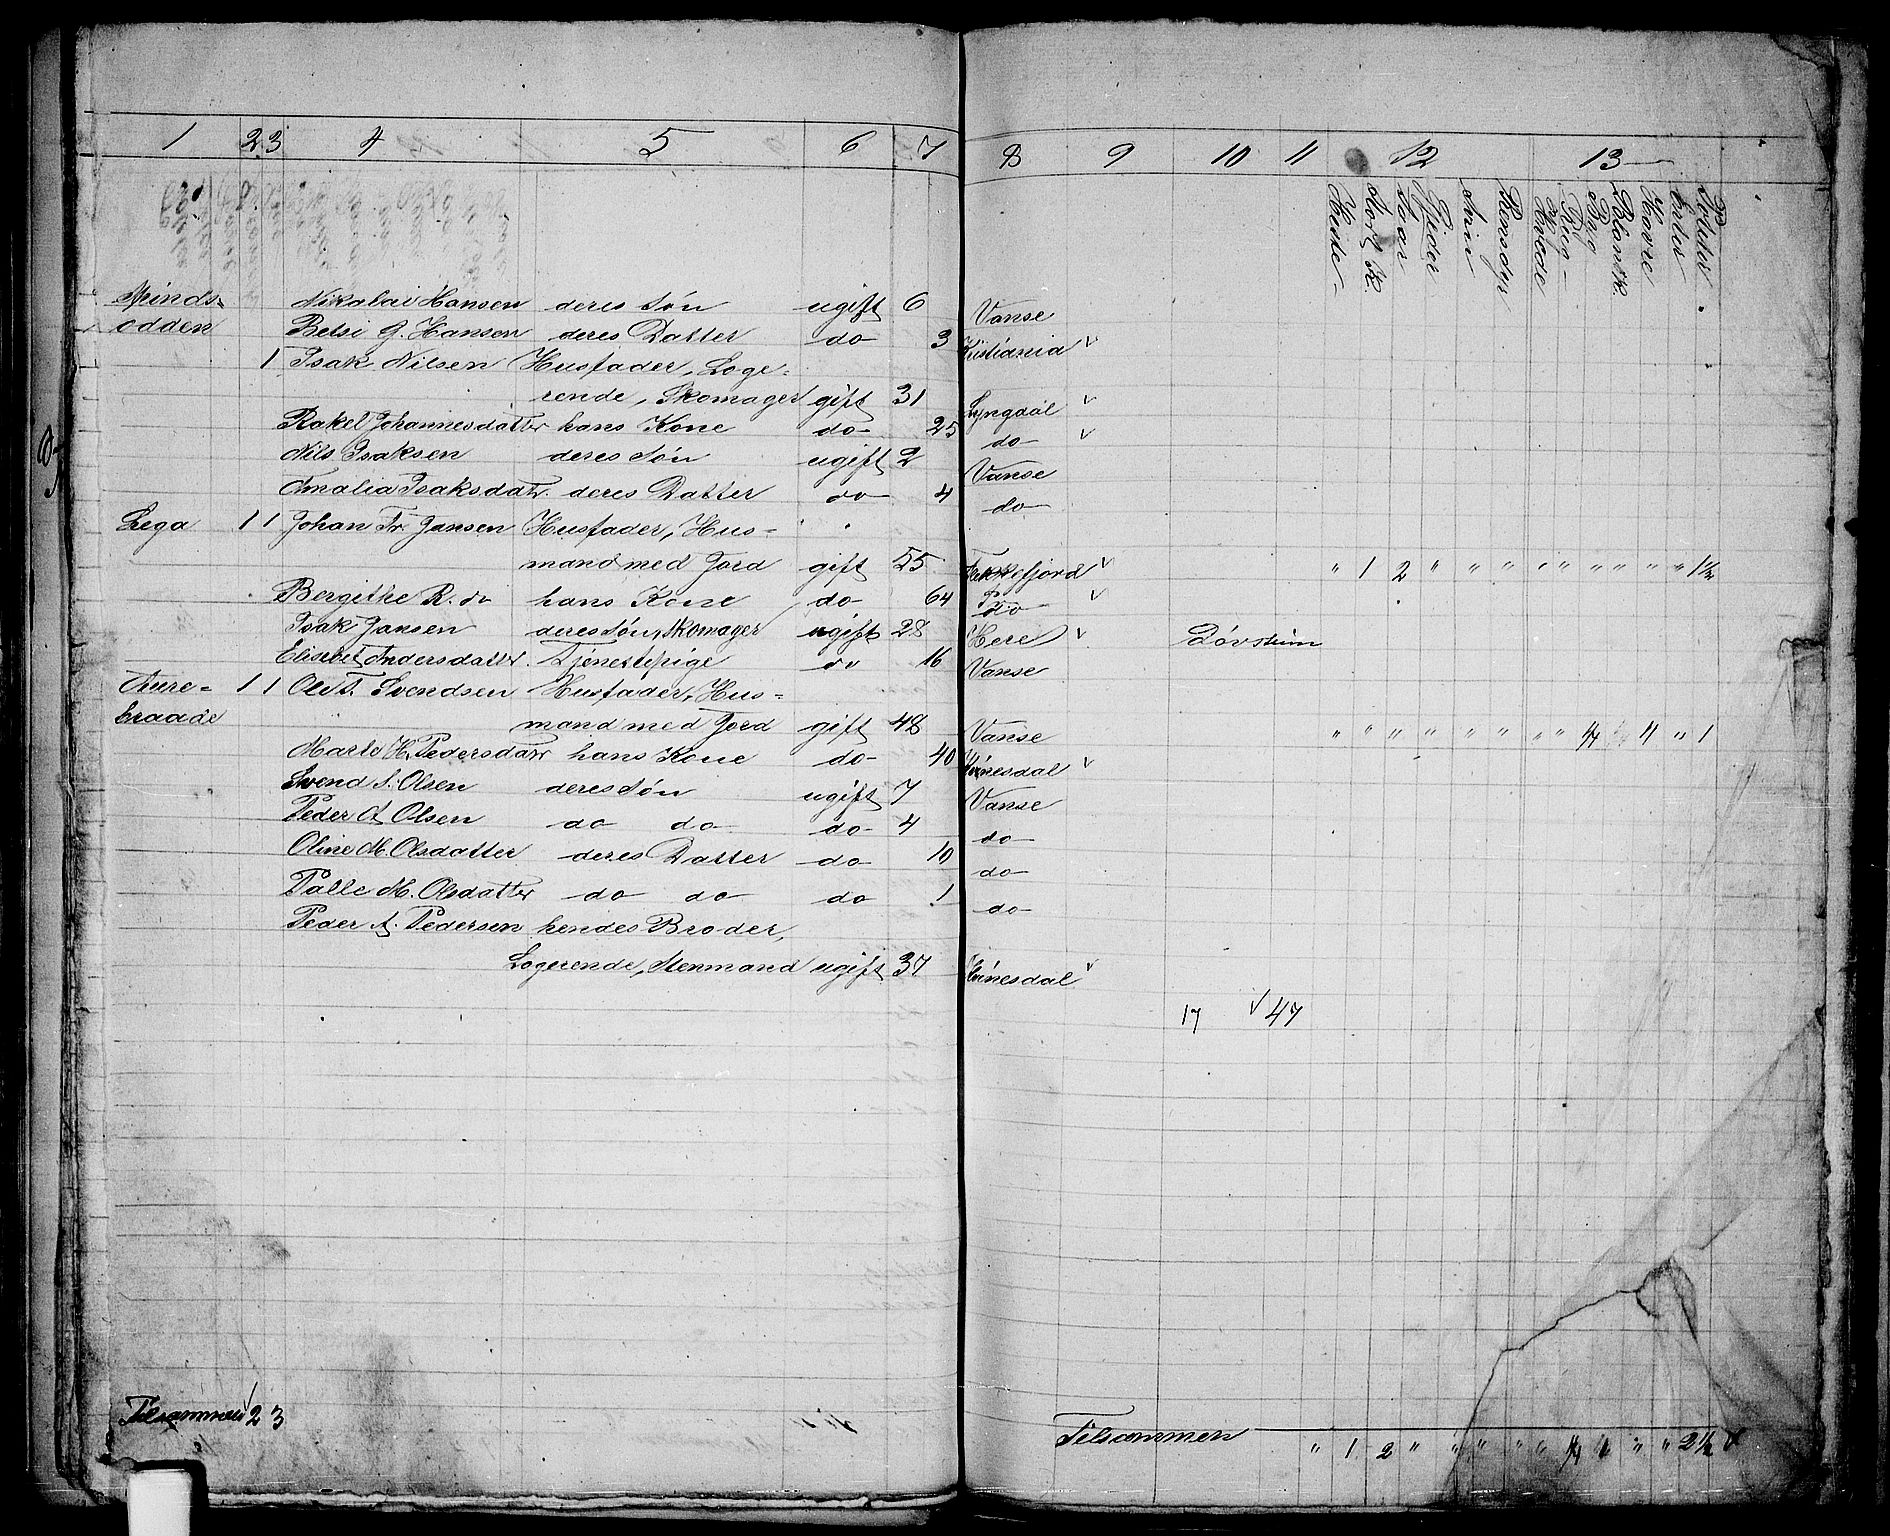 1 2 3 4 5 6 7 8 9 10 11 12 13
Heste Stort K. Faar Gjeder Sviin Rensdyr Hvede Rug Byg Blandk. Havre Erter Poteter
Spinds- Nikolai Hansen deres Søn ugift 6 Vanse
odden Betsi G. Hansen deres Datter do 3 Kristiania v
1 Isak Nilsen Husfader, Loge-
rende, Skomager gift 31 Lyngdal v
Rakel Johannesdatter hans Kone do 25 do v
Nils Isaksen deres Søn ugift 2 Vanse
Amalia Isaksdatr. deres Datter do 4 do
Lega 1 1 Johan Fr. Jansen Husfader, Hus-
mand med Jord gift 55 Flekkefjord v " 1 2 " " " " " " " " " 1½
Bergithe R. do hans Kone do 64 do v
Isak Jansen deres Søn, Skomager ugift 28 Here v Døvstum
Elisebet Andersdatter Tjenestepige do 16 Vanse
Aure- 1 1 Ole T. Svendsen Husfader, Hus-
braade mand med Jord gift 48 Vanse " " " " " " " " ¼ " 1
Marte H. Pedersdatr hans Kone do 40 Kvinesdal v
Svend S. Olsen deres Søn ugift 7 Vanse
Peder A Olsen do do do 4 do
Oline M. Olsdatter deres Datter do 10 do
Palle M. Olsdatter do do do 1 do
Peder A. Pedersen hendes Broder,
Logerende, Stenmand ugift 37 Kvinesdal v
17 v 47
Tilsammen 2 3
Tilsammen " 1 2 " " " " " ¼ " " 2½ v